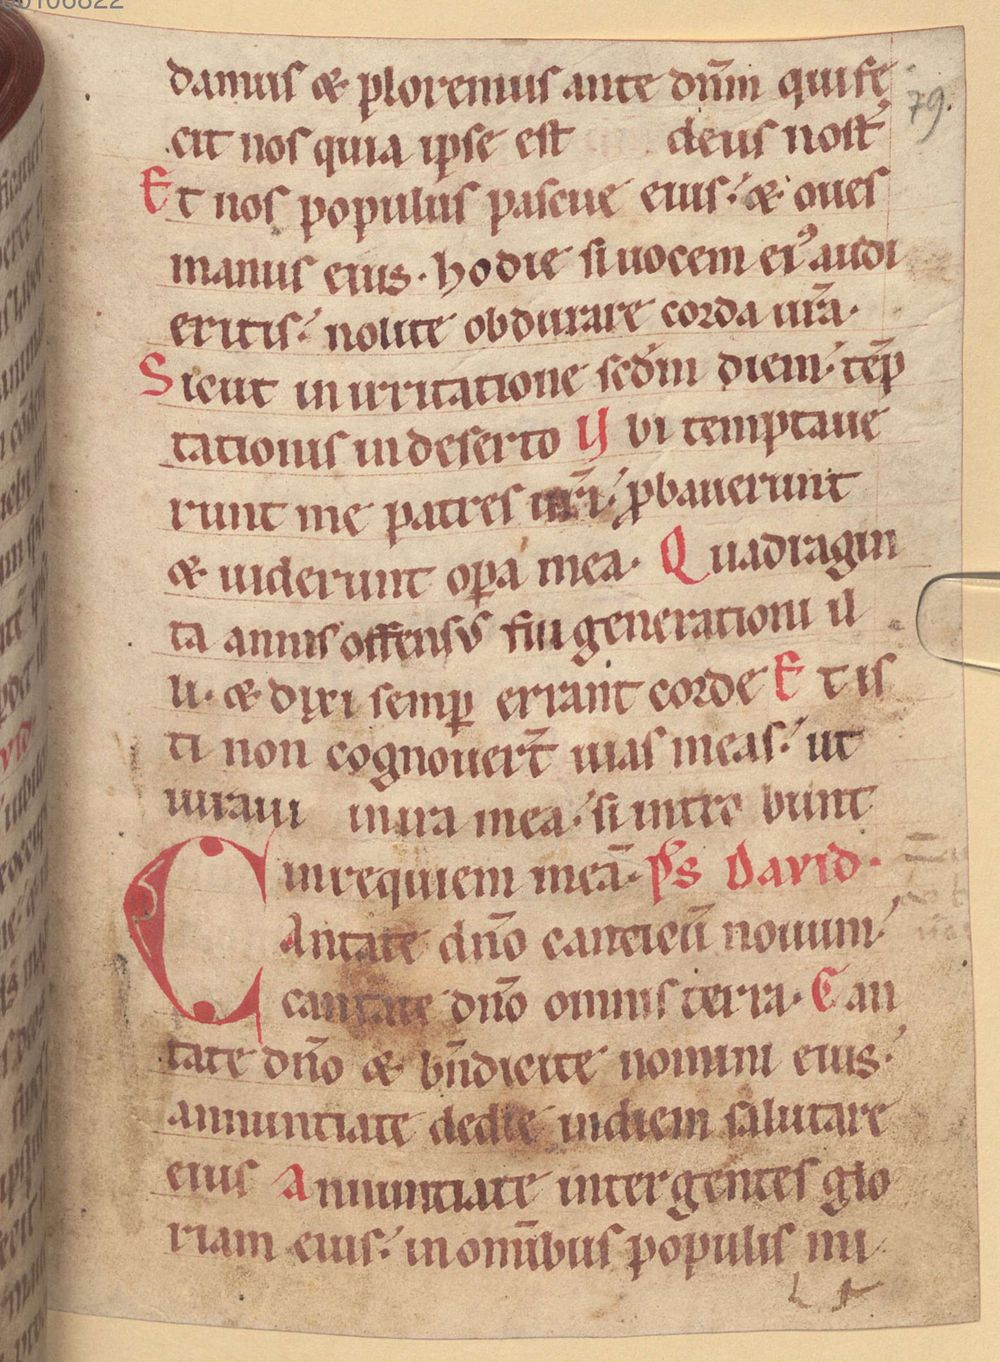 00106822
damus & ploremus ante dn̄m qui fe
79.
cit nos quia ipse est deus nost̄
Et nos populus pascue eius. & oues
manus eius. hodie si uocem ei᾽ audi
eritis. nolite obdurare corda ur̄a.
Sicut in irritatione secd̄m diem. tēp
tationis in deserto Ubi temptaue
runt me patres ur̄i. ꝓbauerunt
& uiderunt opa mea. Quadragin
ta annis offensus fui generationi il
li. & dixi semꝑ errant corde Et is
ti non cognouert̄ uias meas. ut
iuraui in ira mea. si intro bunt
in requiem meā. Ps David.
CAntate dn̄o canticū nouum.
cantate dn̄o omnis terra. Can
tate dn̄o & bn̄dicite nomini eius.
annuntiate de die in diem salutare
eius Annuntiate inter gentes glo
riam eius. in omībus populis mi